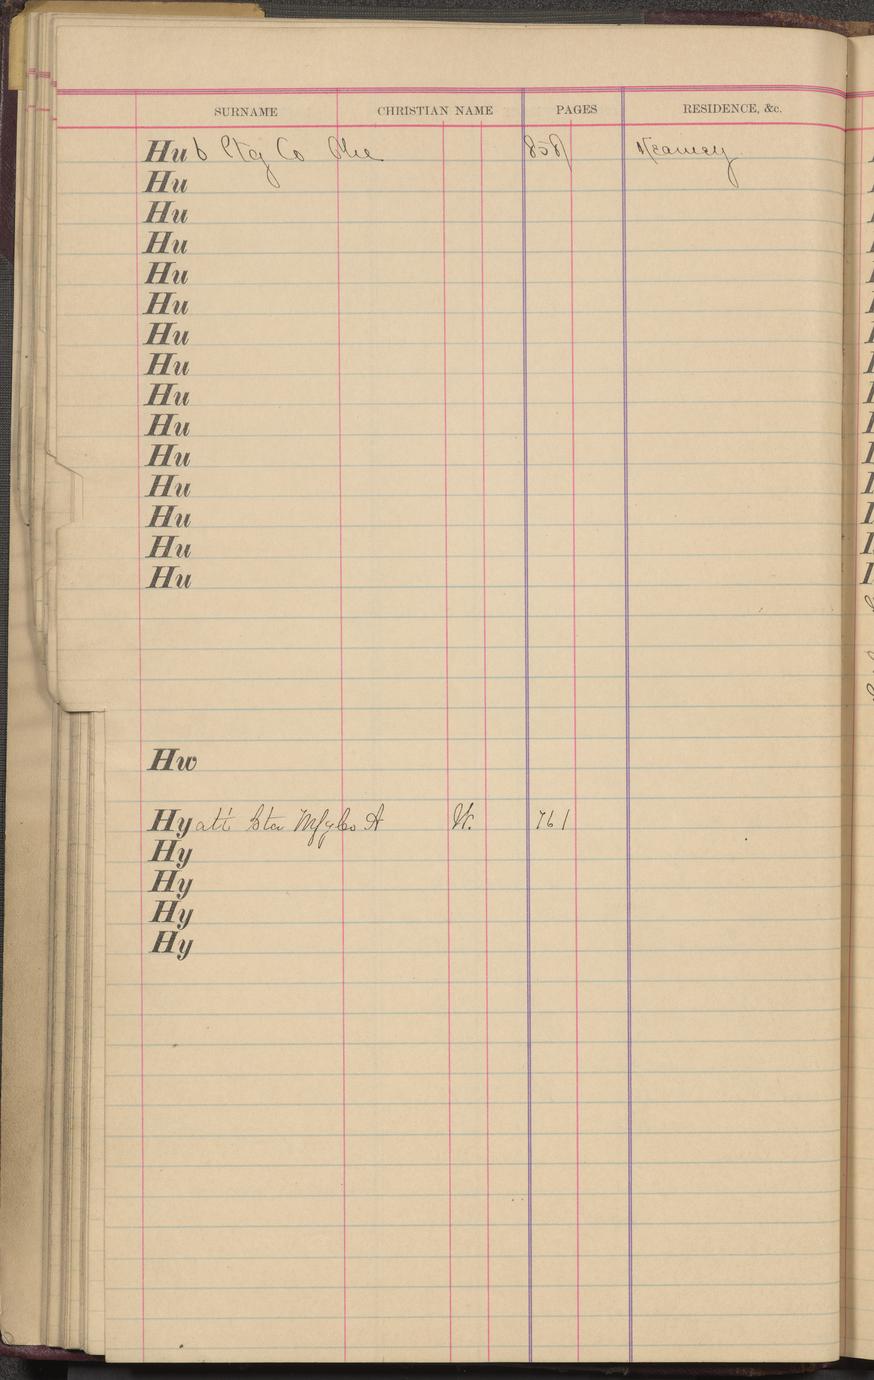 SURNAME CHRISTIAN NAME PAGES RESIDENCE, &c.
Hub Ptg Co The 858 Kearney
Hu
Hu
Hu
Hu
Hu
Hu
Hu
Hu
Hu
Hu
Hu
Hu
Hu
Hu
Hw
Hyatt Mfg Co A 761
Hy
Hy
Hy
Hy